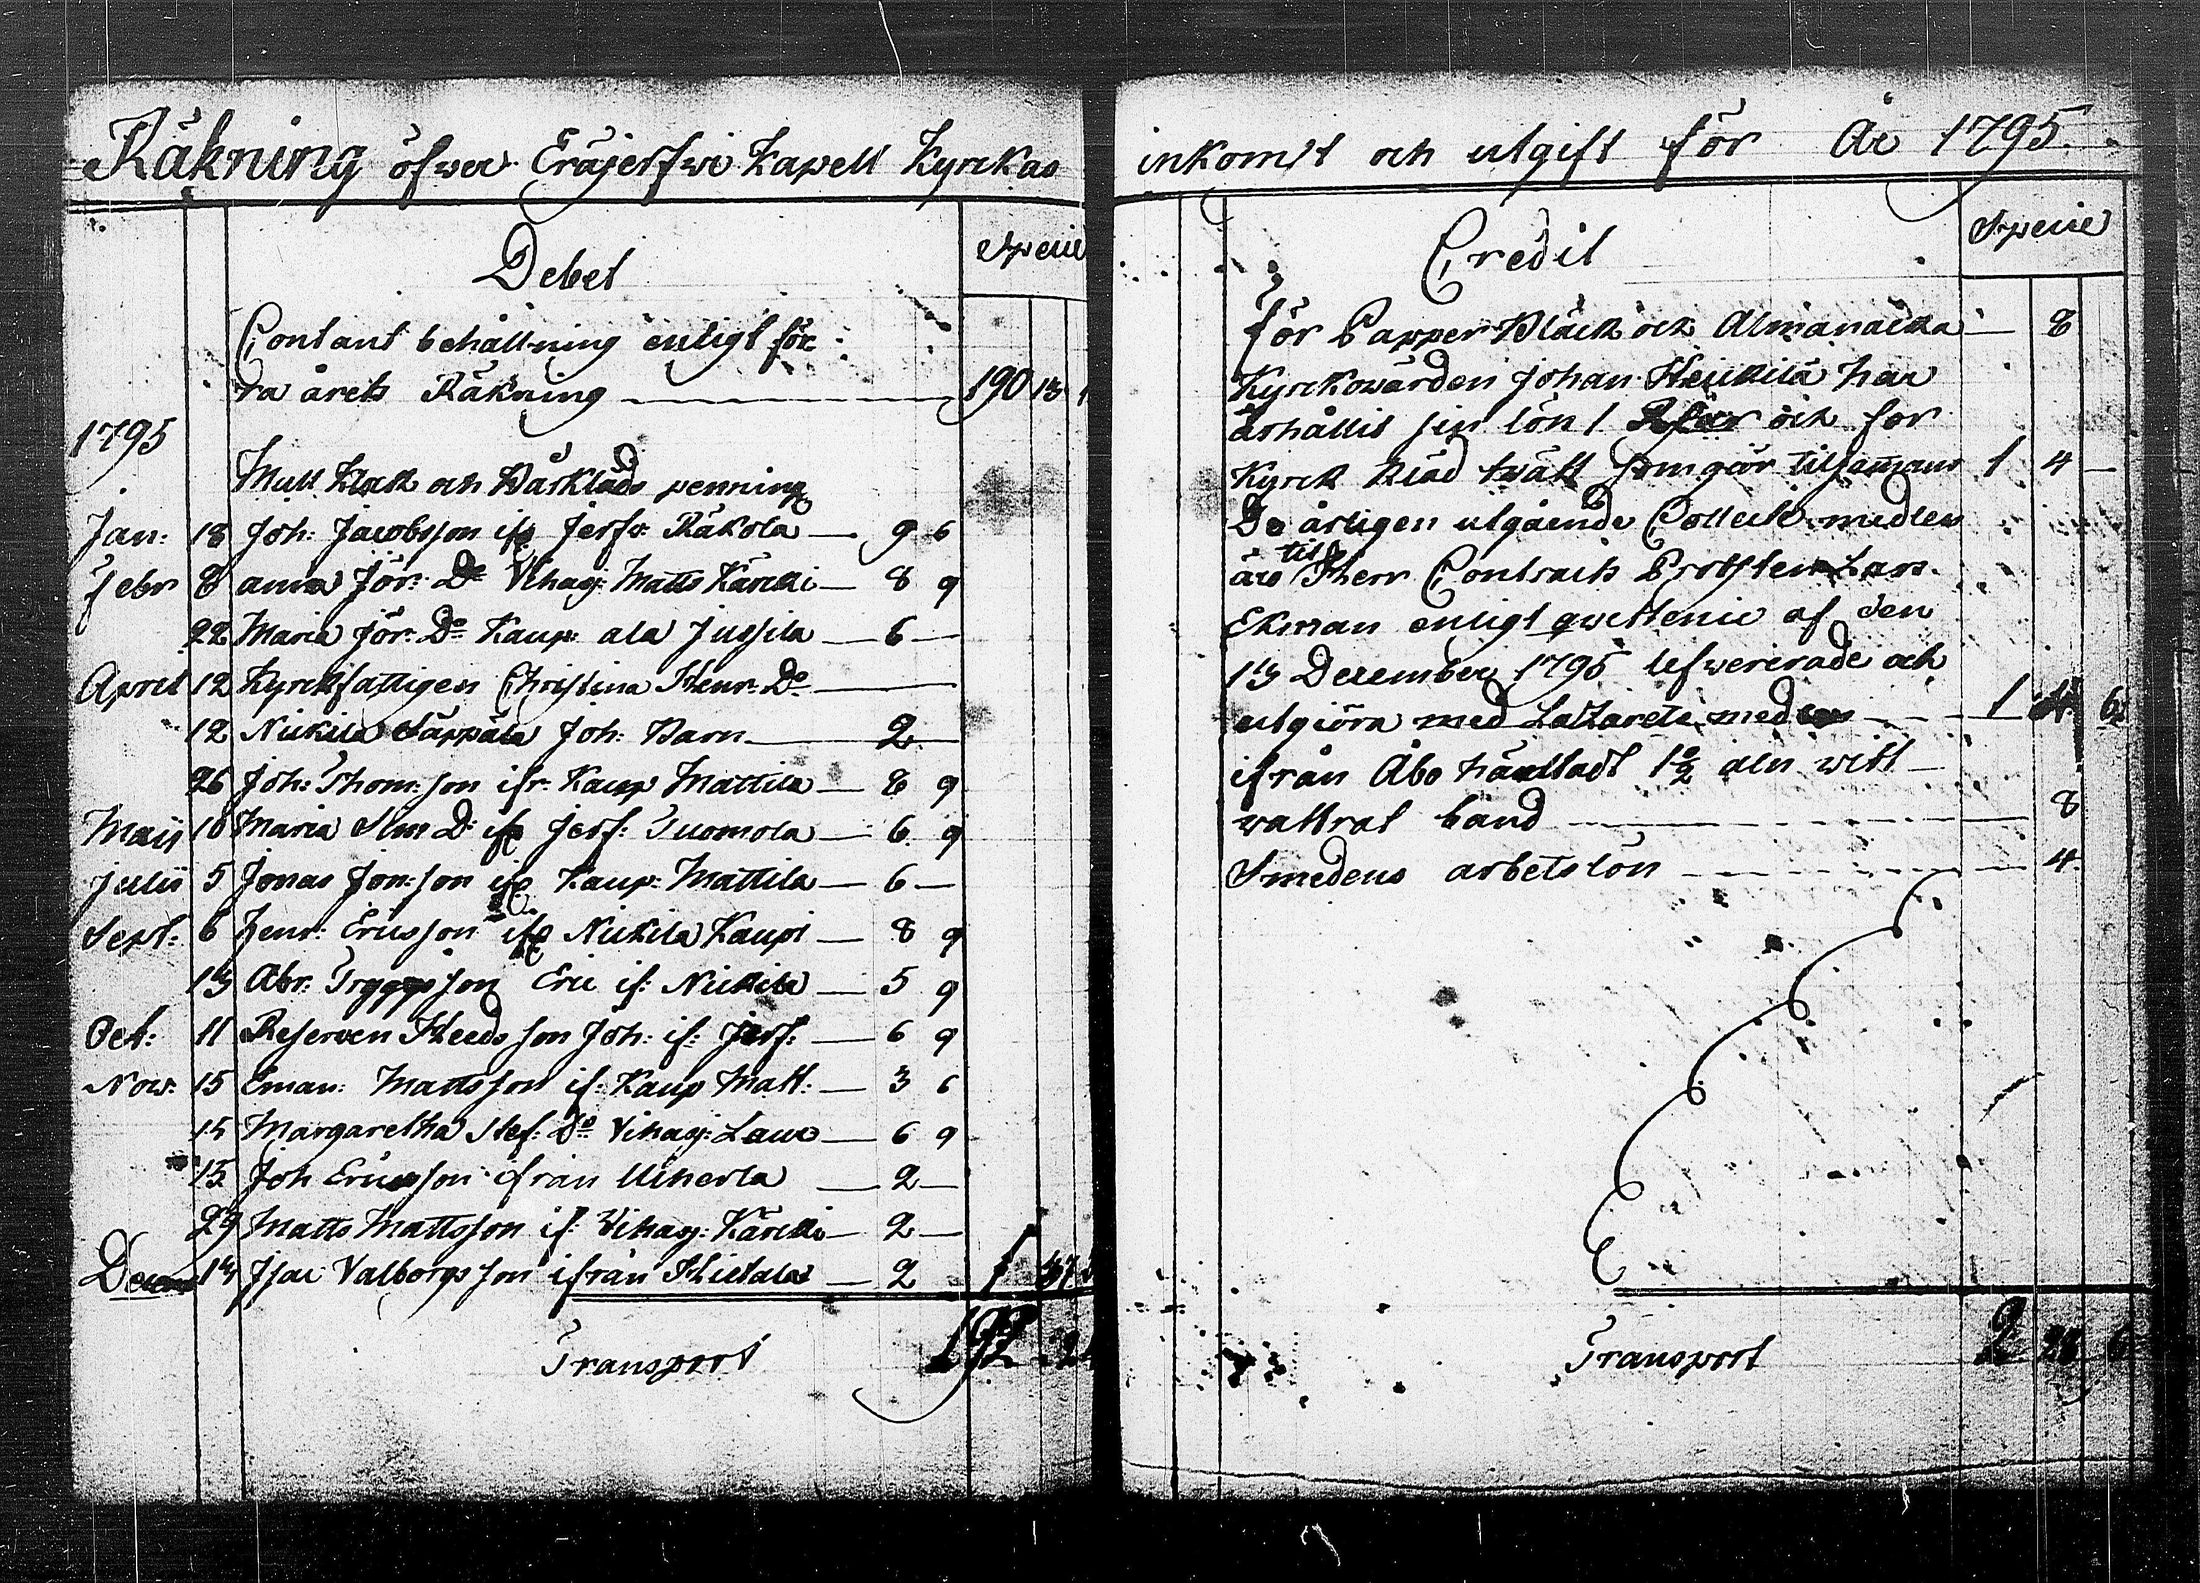 Räkning öfwer Eräjerfwi Kapell Kyrckas
Debet
Specie
Contant behållning enligt för-
ra årets Räkning — 190 13 1
1795
Mull Klack och Bårkläds penning
Jan: 18 Joh: Jacobsson ifr Jerfw: Räkola — 9 6
Febr 8 anna Jör: Dr Vihaj: Matts Kärcki — 8 9
22 Maria Jör: Do Kaup: ala Jussila — 6 —
April 12 Kyrckfattigen Christina Henr: Do —
12 Nickila Säppälä Joh: Barn — 2 —
26 Joh: Thom:son ifr: Kaup Mattila — 8 9
Maij 10 Maria Sim D: ifr Jerf: Tuomola — 6 9
Julii 5 Jonas Jon:son ifr Kaup: Mattila — 6 —
Sept: 6 Henr: Ericsson ifr Nickila Kaupi — 8 9
13 Abr: Tryggsson Eric if: Nickila — 5 9
Oct: 11 Reserven Heedsson Joh: if: Jerf: — 6 9
Now: 15 Eman: Mattsson if: Kaup Matt: — 3 6
15 Margaretha Stef: Do Vihaj: Laur — 6 9
15 Joh Ericsson ifrån Uiherla — 2 —
29 Matts Mattsson if: Vihaj: Kärcki — 2 —
Decem 13 Isac Valborgsson ifrån Hietala — 2 1 37
Transport 192
inkomst och utgift för År 1795.
Credit
Specie
för Papper Bläck och Almanacka — 8
Kyrckowärden Johan Heickilä har
ärhållit sin lön 1 och for
Kyrck Kläd twätt som giör tilsammans 1 4 —
De årligen utgående Collect medlen
äro til Herr Contracts Probsten Lars
Ekman enligt qwittence af den
13 December 1795 lefwererade och
utgiöra med Lattarets medlen — 1 4 6
ifrån Åbo håulladt 1½ aln witt
wattrat band — 8
Smedens arbetslön — 4.
Transport 2 28 6